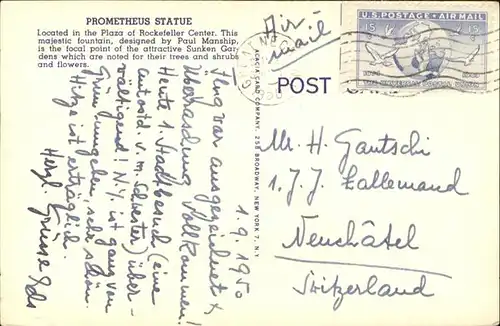 PROMETHEUS STATUE
Located in the Plaza of Rockefeller Center. This
majestic fountain, designed by Paul Manship,
is the focal point of the attractive Sunken Gar-
dens which are noted for their trees and shrubs
and flowers.
1.9.1950
Flug war ausgezeichnet &
Überraschung Vollkommen!
Heute 1. Stadtbesuch (eine
Autostd. v. m. Schwester) über-
wältigend! N.Y. ist ganz von
Grün umgeben, sehr schön.
Hitze ist erträglich.
Herzl. Grüsse
ACACIA CARD COMPANY, 258 BROADWAY, NEW YORK 7, N.Y.
Air-
mail
POST
U.S. POSTAGE AIR MAIL
15¢ 15¢
UNIVERSAL POSTAL UNION
Mr. H. Gautschi
1. J.J. Lallemand
Neuchâtel
Switzerland